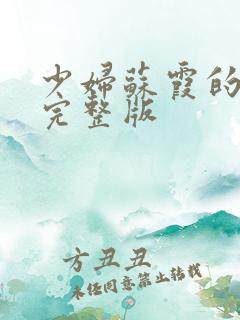 少婦蘇霞的
完整版
方丑丑
未经同意禁止转载